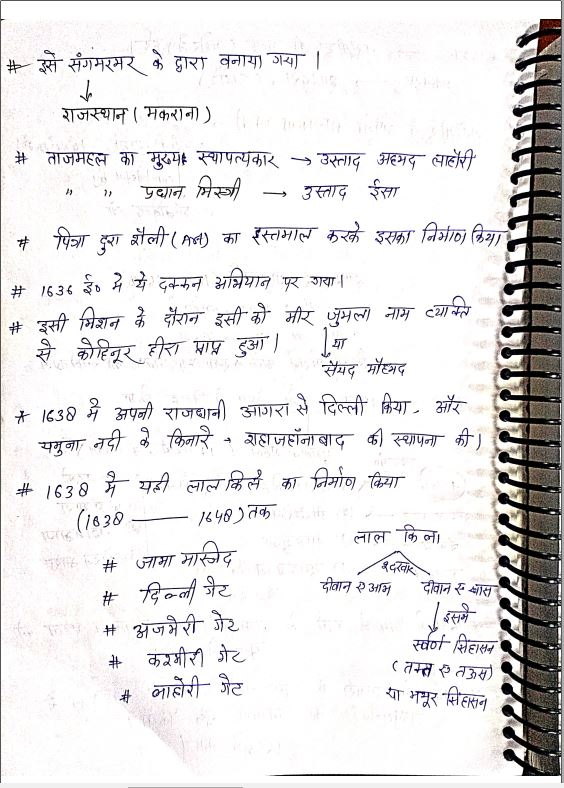 # इसे संगमरमर के द्वारा बनाया गया ।
↓
राजस्थान ( मकराना )
# ताजमहल का मुख्य स्थापत्यकार → उस्ताद अहमद लाहौरी
" " प्रधान मिस्त्री → उस्ताद ईसा
# पित्रा दुरा शैली (Art) का इस्तमाल करके इसका निर्माण किया।
# 1636 ई० मे ये दक्कन अभियान पर गया।
# इसी मिशन के दौरान इसी को मीर जुमला नाम व्यक्ति
से कोहिनूर हीरा प्राप्त हुआ। ↓या
सैयद मौहमद
* 1638 मे अपनी राजधानी आगरा से दिल्ली किया, और
यमुना नदी के किनारे → शहाजहाँनाबाद की स्थापना की।
# 1638 मै यही लाल किले का निर्माण किया
(1638 —— 1648) तक
# जामा मस्जिद
# दिल्ली गेट
# अजमेरी गेट
# कश्मीरी गेट
# लाहोरी गेट
लाल किला
2 दरबार
दीवान ए आम दीवान ए खास
↓ इसमे
स्वर्ण सिंहासन
( तख्त ए ताऊस )
या मयूर सिंहासन